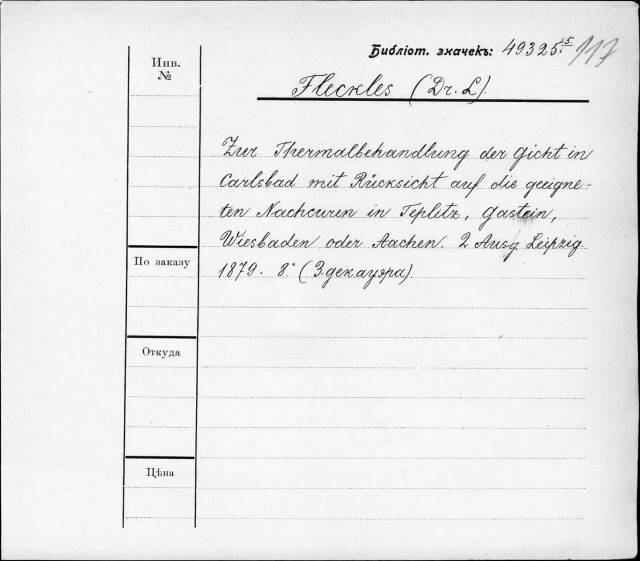 Библіот. значекъ: 49325 45. 117
Инв.
№
Fleckles (Dr. L).
Zur Thermalbehandlung der Gicht in
Carlsbad mit Rücksicht auf die geeigne-
ten Nachcuren in Teplitz, Gastein,
Wiesbaden oder Aachen. 2 Ausg Leipzig.
1879. 8.° (Здекауэра)
По заказу
Откуда
Цѣна